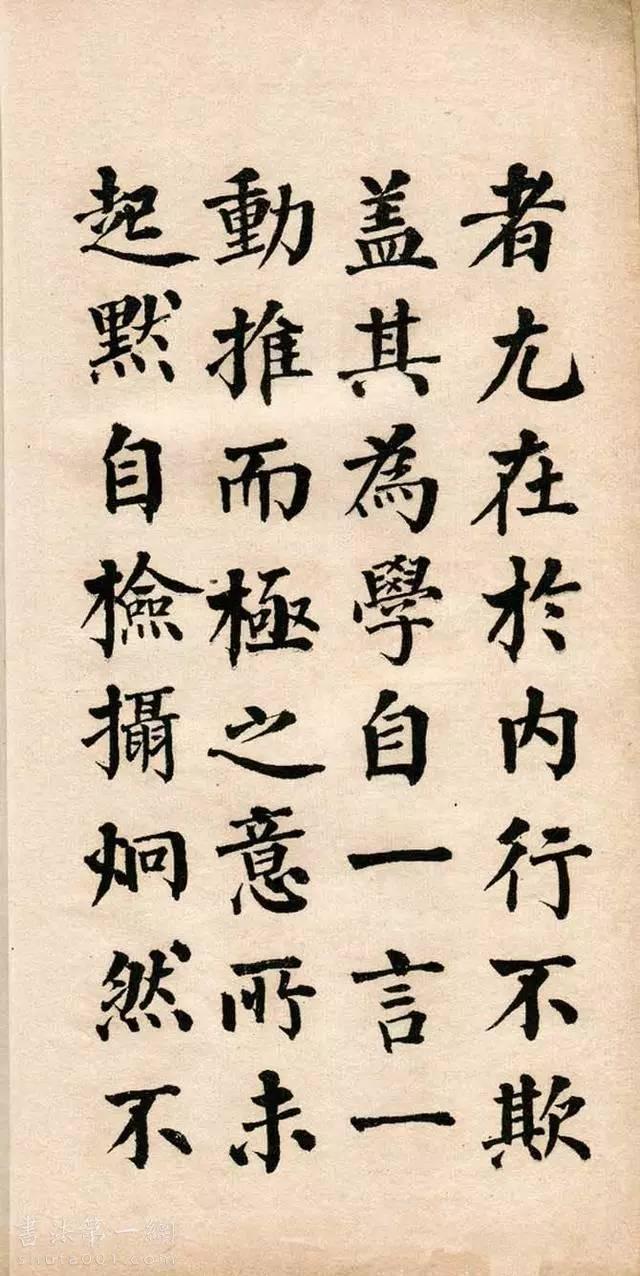 者尤在於内行不欺
蓋其為學自一言一
動推而極之意所未
起默自檢攝炯然不
書法第一網
shufa001.com